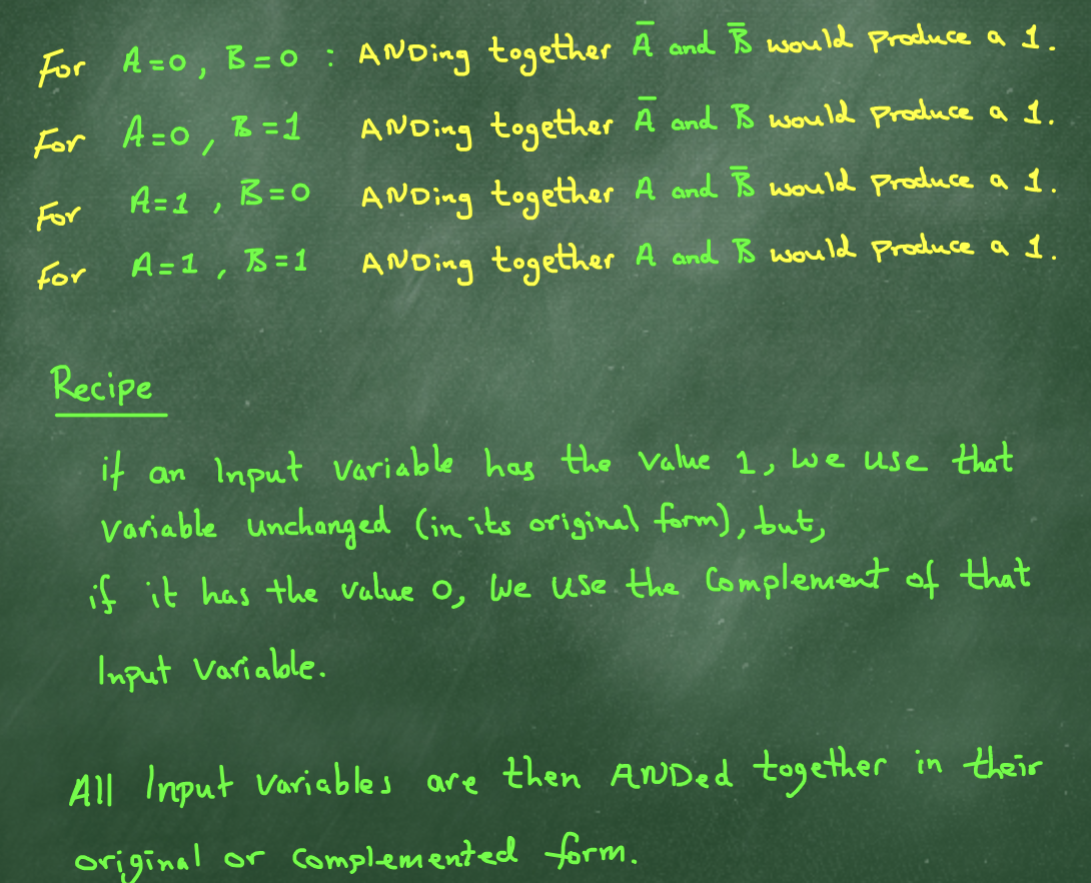 For A=0, B=0 : ANDing together A̅ and B̅ would produce a 1.
For A=0, B=1 ANDing together A̅ and B would produce a 1.
For A=1, B=0 ANDing together A and B̅ would produce a 1.
For A=1, B=1 ANDing together A and B would produce a 1.
Recipe
if an Input variable has the value 1, we use that
variable unchanged (in its original form), but,
if it has the value 0, we use the complement of that
Input variable.
All Input variables are then ANDed together in their
original or complemented form.